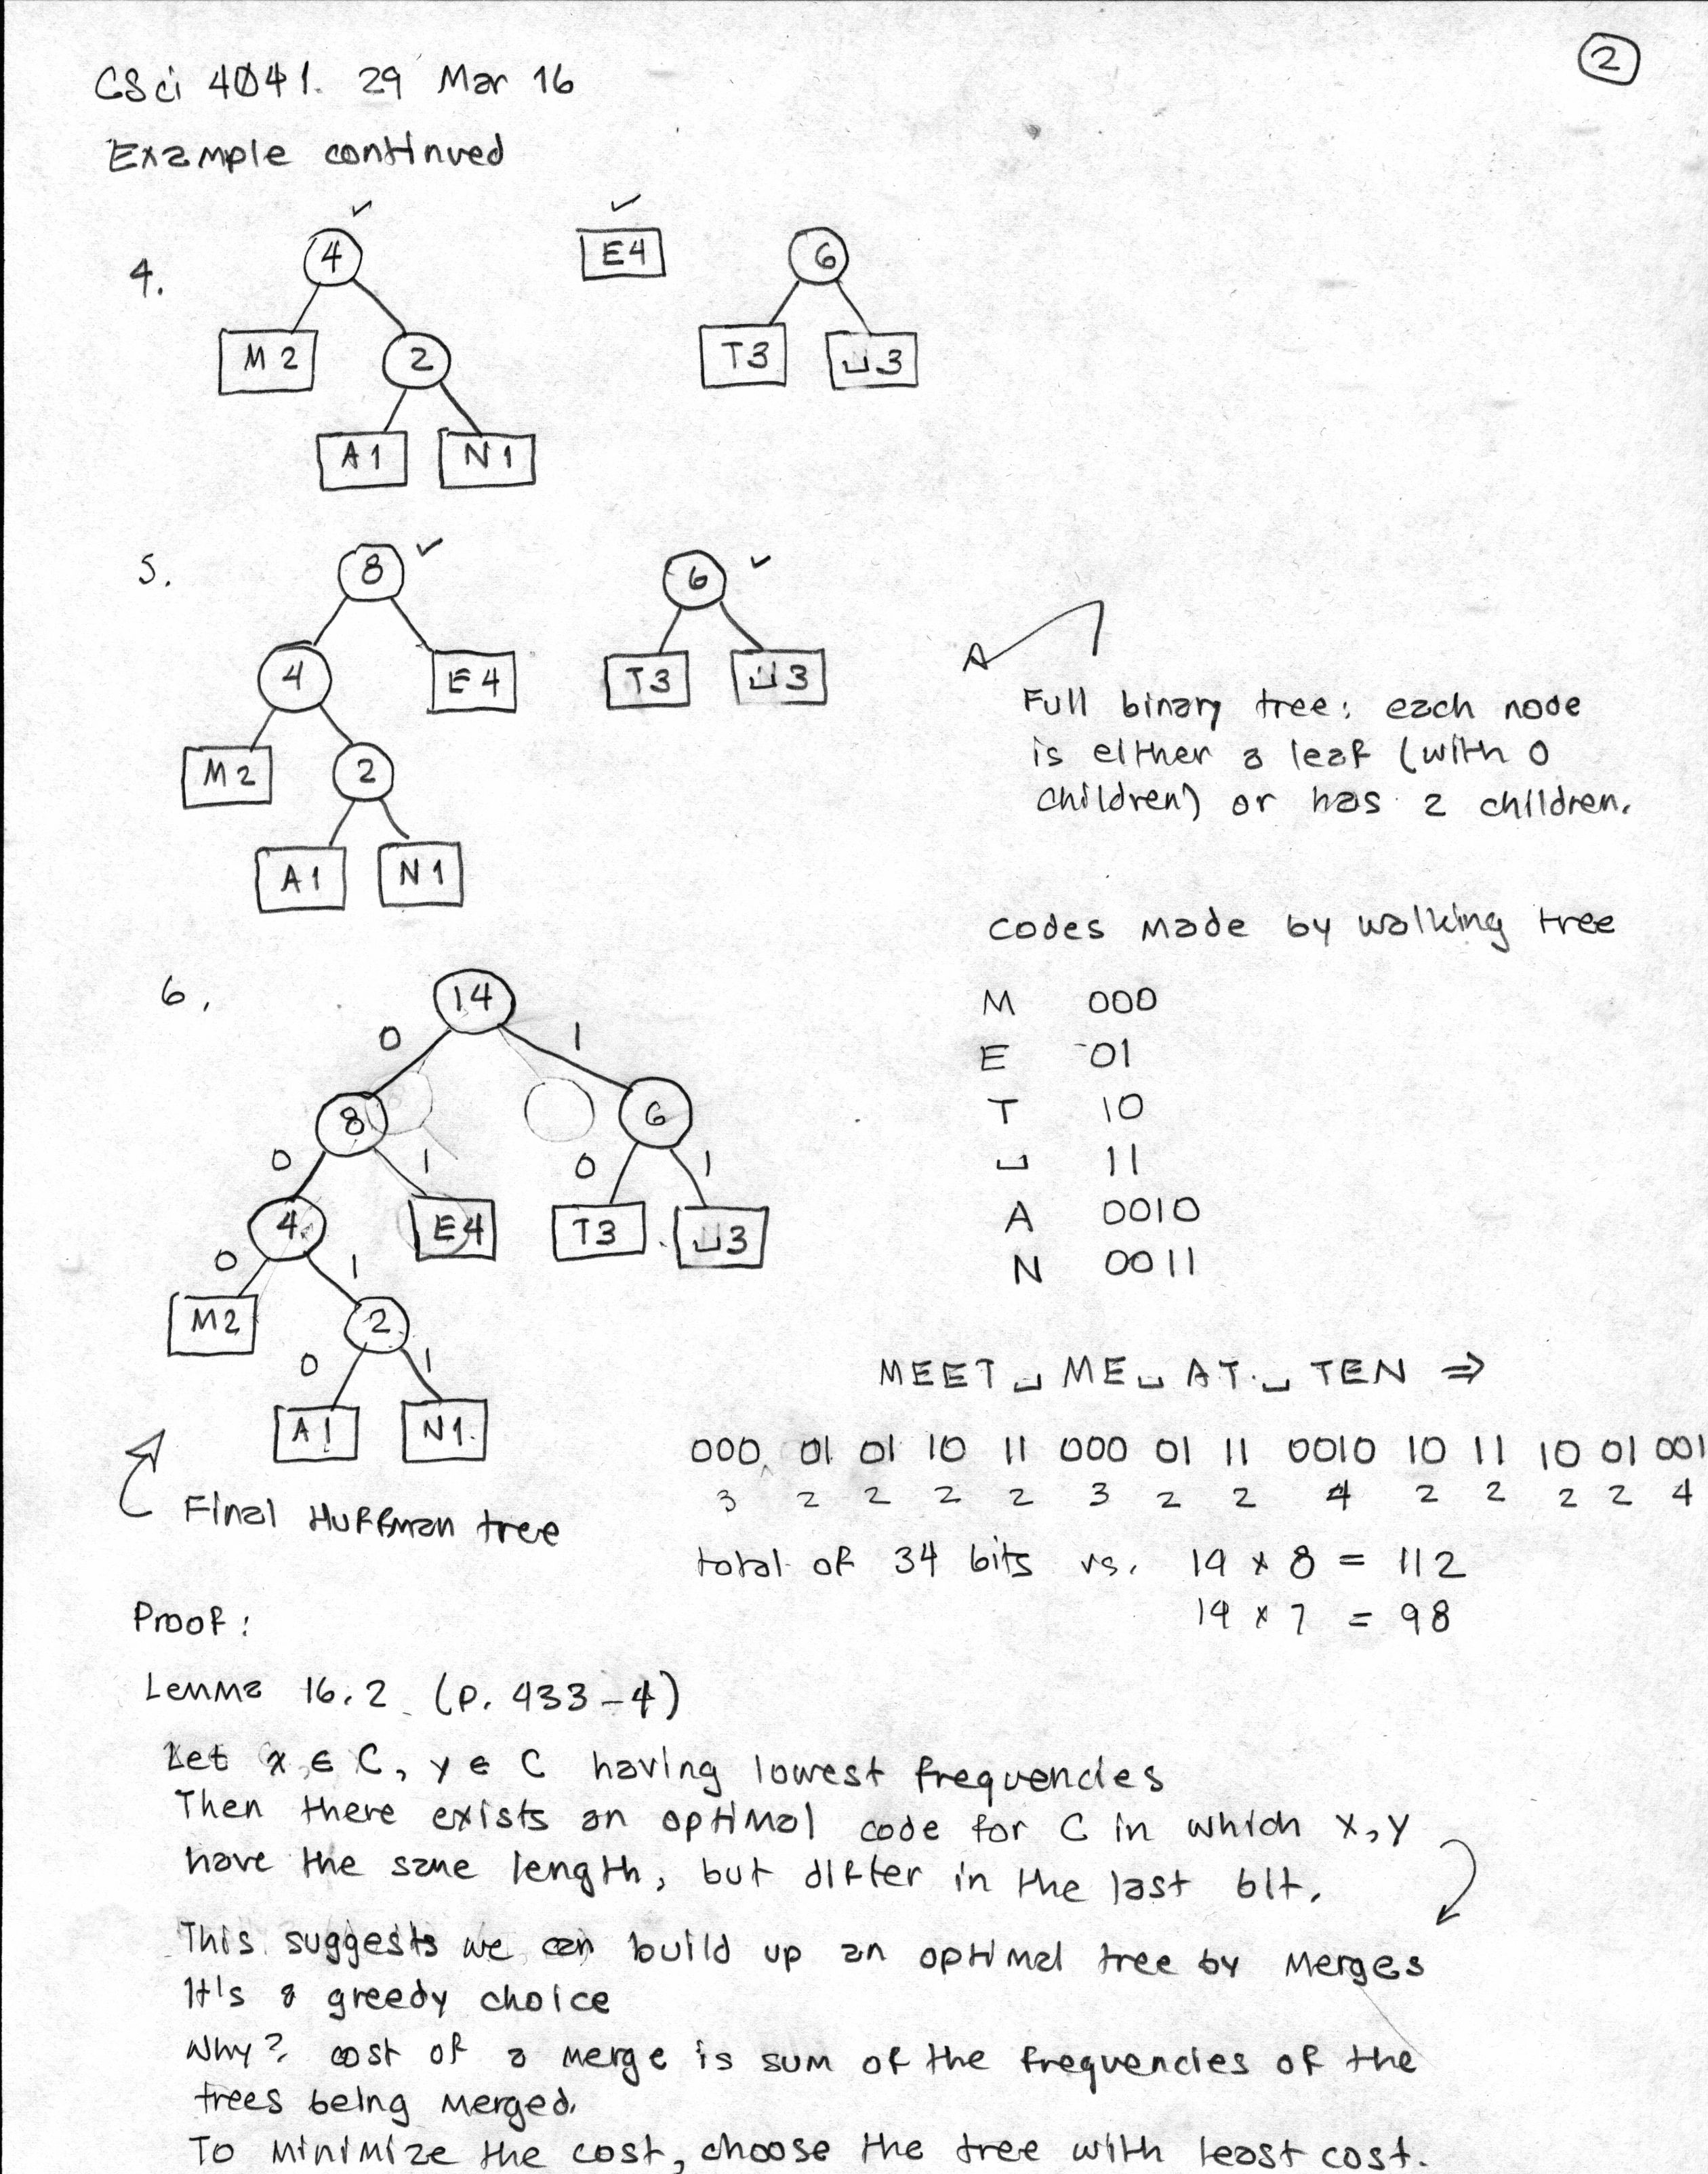 2
CSci 4041. 29 Mar 16
Example continued
4.
4
E4
6
M2
2
T3
⌴3
A1
N1
5.
8
6
4
E4
T3
⌴3
M2
2
A1
N1
Full binary tree: each node
is either a leaf (with 0
children) or has 2 children.
codes made by walking tree
M 000
E 01
T 10
⌴ 11
A 0010
N 0011
6.
14
0 1
8
6
0 1 0 1
4
E4
T3
⌴3
0 1
M2
2
0 1
A1
N1
Final Huffman tree
MEET⌴ME⌴AT⌴TEN ⇒
000 01 01 10 11 000 01 11 0010 10 11 10 01 001
3 2 2 2 2 3 2 2 4 2 2 2 2 4
total of 34 bits vs. 14 x 8 = 112
14 x 7 = 98
Proof:
Lemma 16.2 (p. 433-4)
Let x ∈ C, y ∈ C having lowest frequencies
Then there exists an optimal code for C in which x, y
have the same length, but differ in the last bit.
This suggests we can build up an optimal tree by merges
It's a greedy choice
Why? cost of a merge is sum of the frequencies of the
trees being merged.
To minimize the cost, choose the tree with least cost.